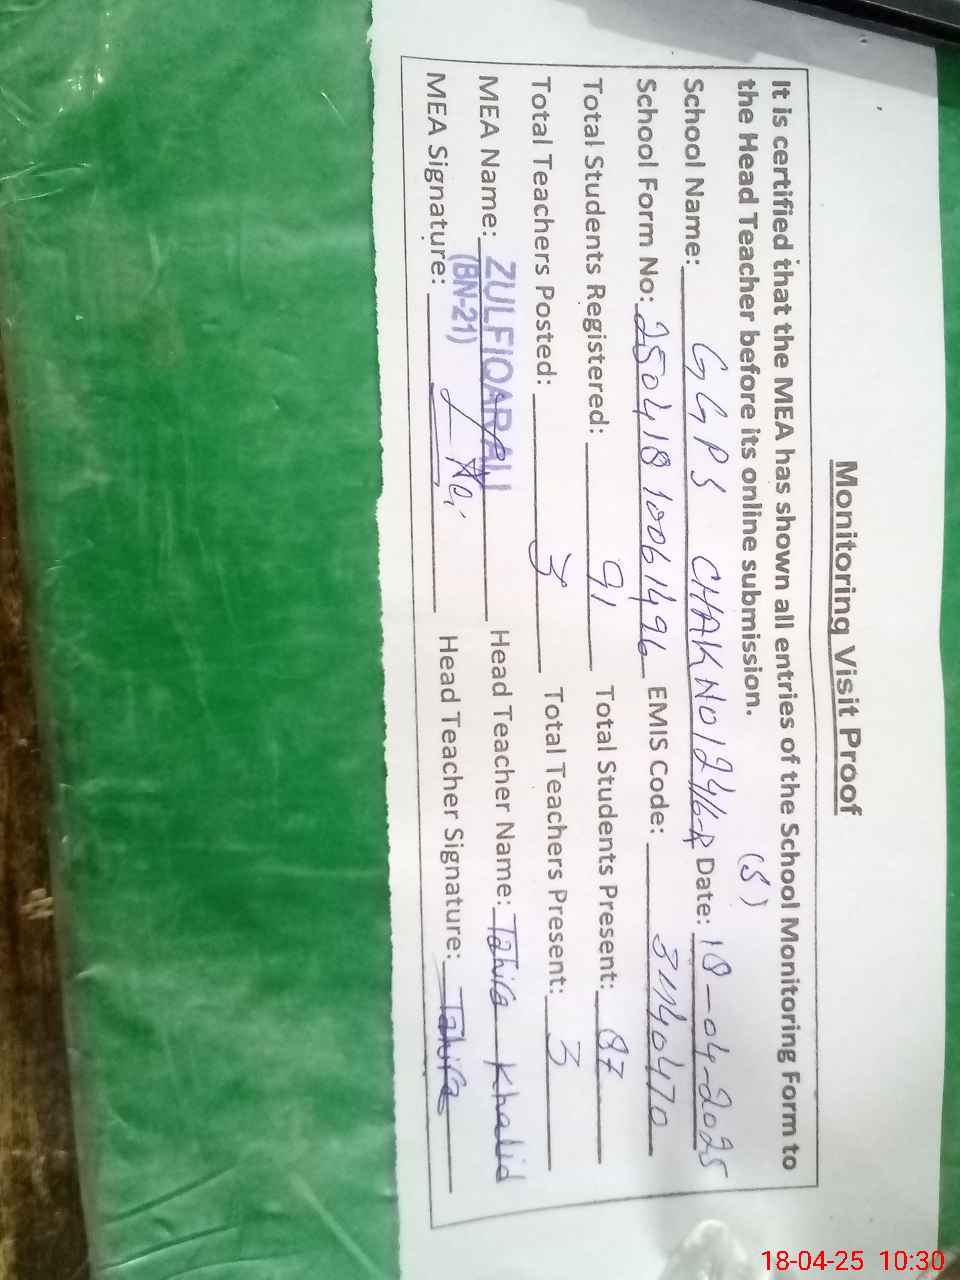 Monitoring Visit Proof
It is certified that the MEA has shown all entries of the School Monitoring Form to
the Head Teacher before its online submission.
(S)
School Name: GGPS CHAK NO 124/6-R Date: 18-04-2025
School Form No: 25041810061496 EMIS Code: 31140470
Total Students Registered: 91 Total Students Present: 87
Total Teachers Posted: 3 Total Teachers Present: 3
MEA Name: ZULFIQAR ALI Head Teacher Name: Tahira Khalid
(BN-21)
MEA Signature: Head Teacher Signature: Tahira
18-04-25 10:30